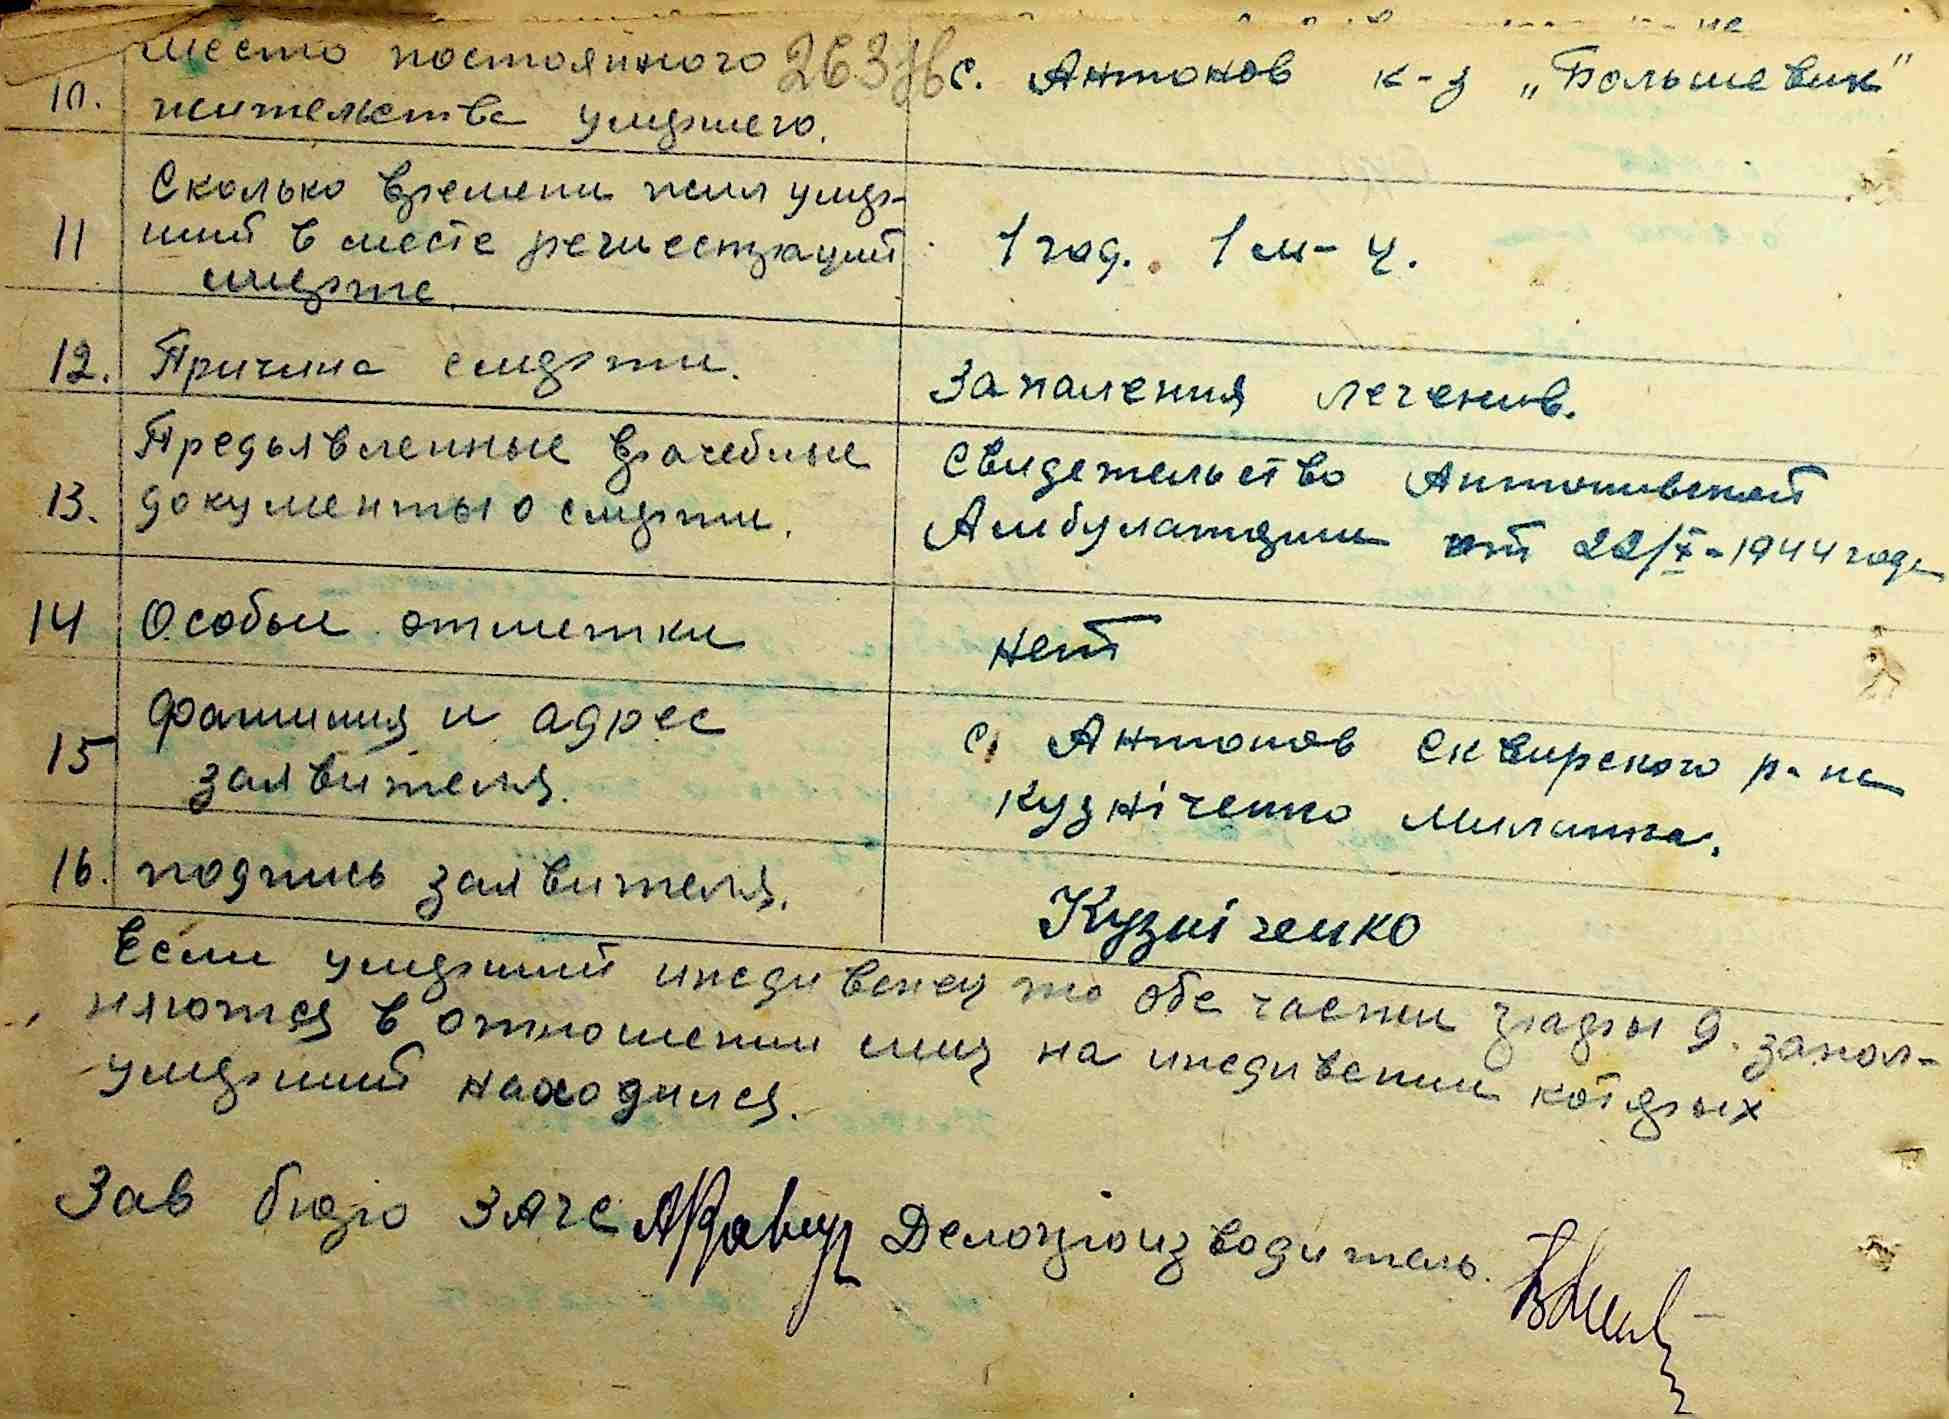 Место постоянного 263зв с. Антонов к-з „Большевик"
10.
жительства умершего.
Сколько времени жил умер-
11 ший в месте регистраций 1 год. 1 м-ц.
смерти.
12. Причина смерти. Запаления легенив.
Предьявленные врачебные Свидетельство Антоновской
13. документы о смерти. Амбулатории от 22/X-1944 года
14 Особые отметки нет
Фамилия и адрес с. Антонов Сквирского р-на
15 заявителя. Кузніченко Миланка.
16. подпись заявителя. Кузніченко
Если умерший иждивенец то обе части графы 9. запол-
няются в отношении лиц на иждивении которых
умерший находился.
Зав бюро ЗАГС Делопроизводитель.